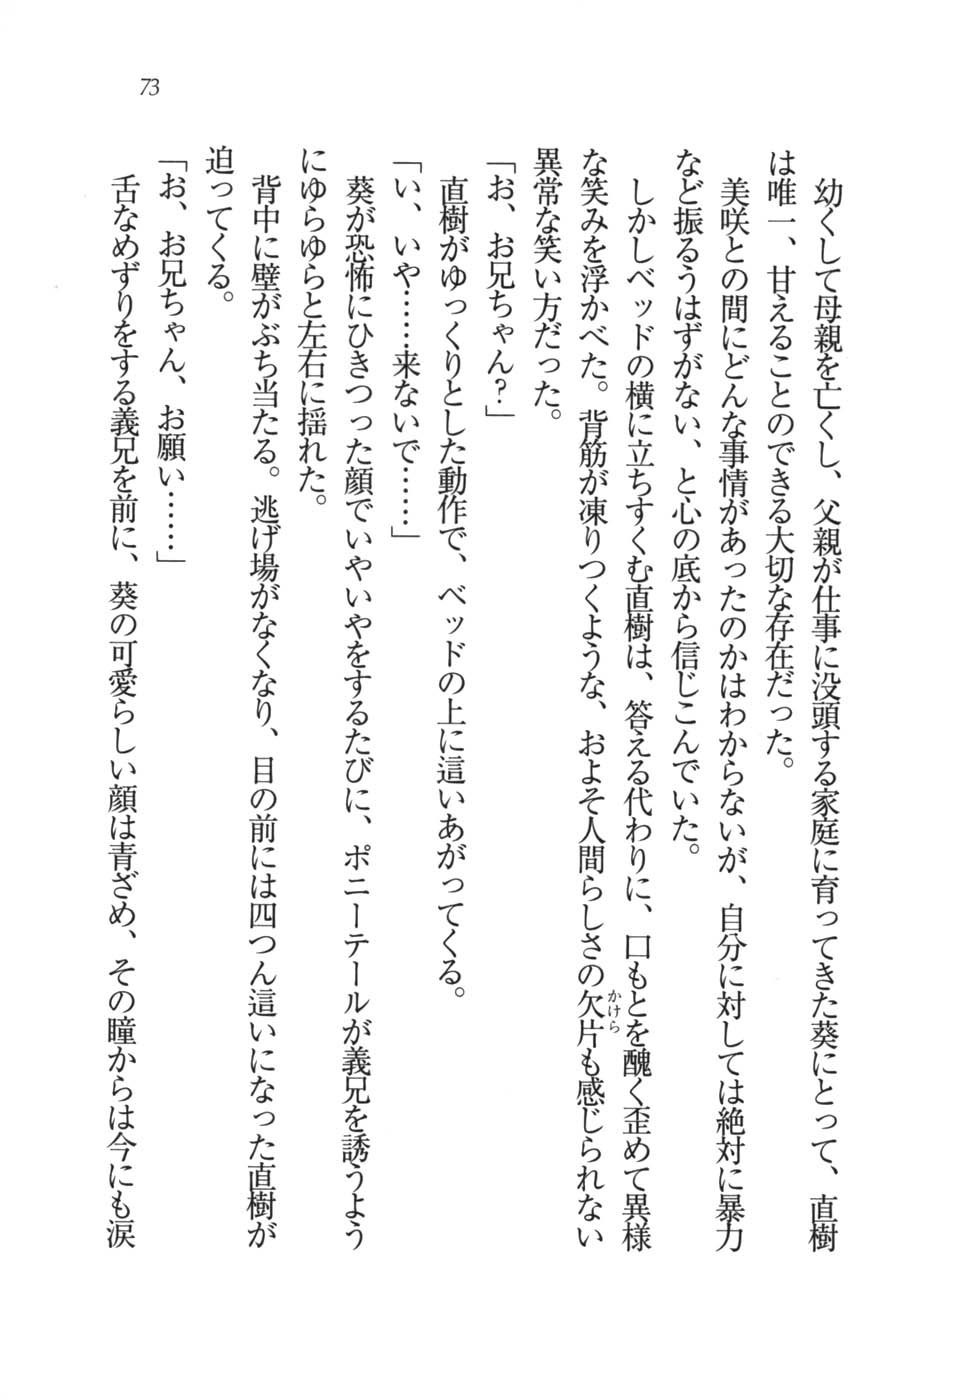 73
幼くして母親を亡くし、父親が仕事に没頭する家庭に育ってきた葵にとって、直樹
は唯一、甘えることのできる大切な存在だった。
美咲との間にどんな事情があったのかはわからないが、自分に対しては絶対に暴力
など振るうはずがない、と心の底から信じこんでいた。
しかしベッドの横に立ちすくむ直樹は、答える代わりに、口もとを醜く歪めて異様
な笑みを浮かべた。背筋が凍りつくような、およそ人間らしさの欠片かけらも感じられない
異常な笑い方だった。
「お、お兄ちゃん?」
直樹がゆっくりとした動作で、ベッドの上に這いあがってくる。
「い、いや……来ないで……」
葵が恐怖にひきつった顔でいやいやをするたびに、ポニーテールが義兄を誘うよう
にゆらゆらと左右に揺れた。
背中に壁がぶち当たる。逃げ場がなくなり、目の前には四つん這いになった直樹が
迫ってくる。
「お、お兄ちゃん、お願い……」
舌なめずりをする義兄を前に、葵の可愛らしい顔は青ざめ、その瞳からは今にも涙